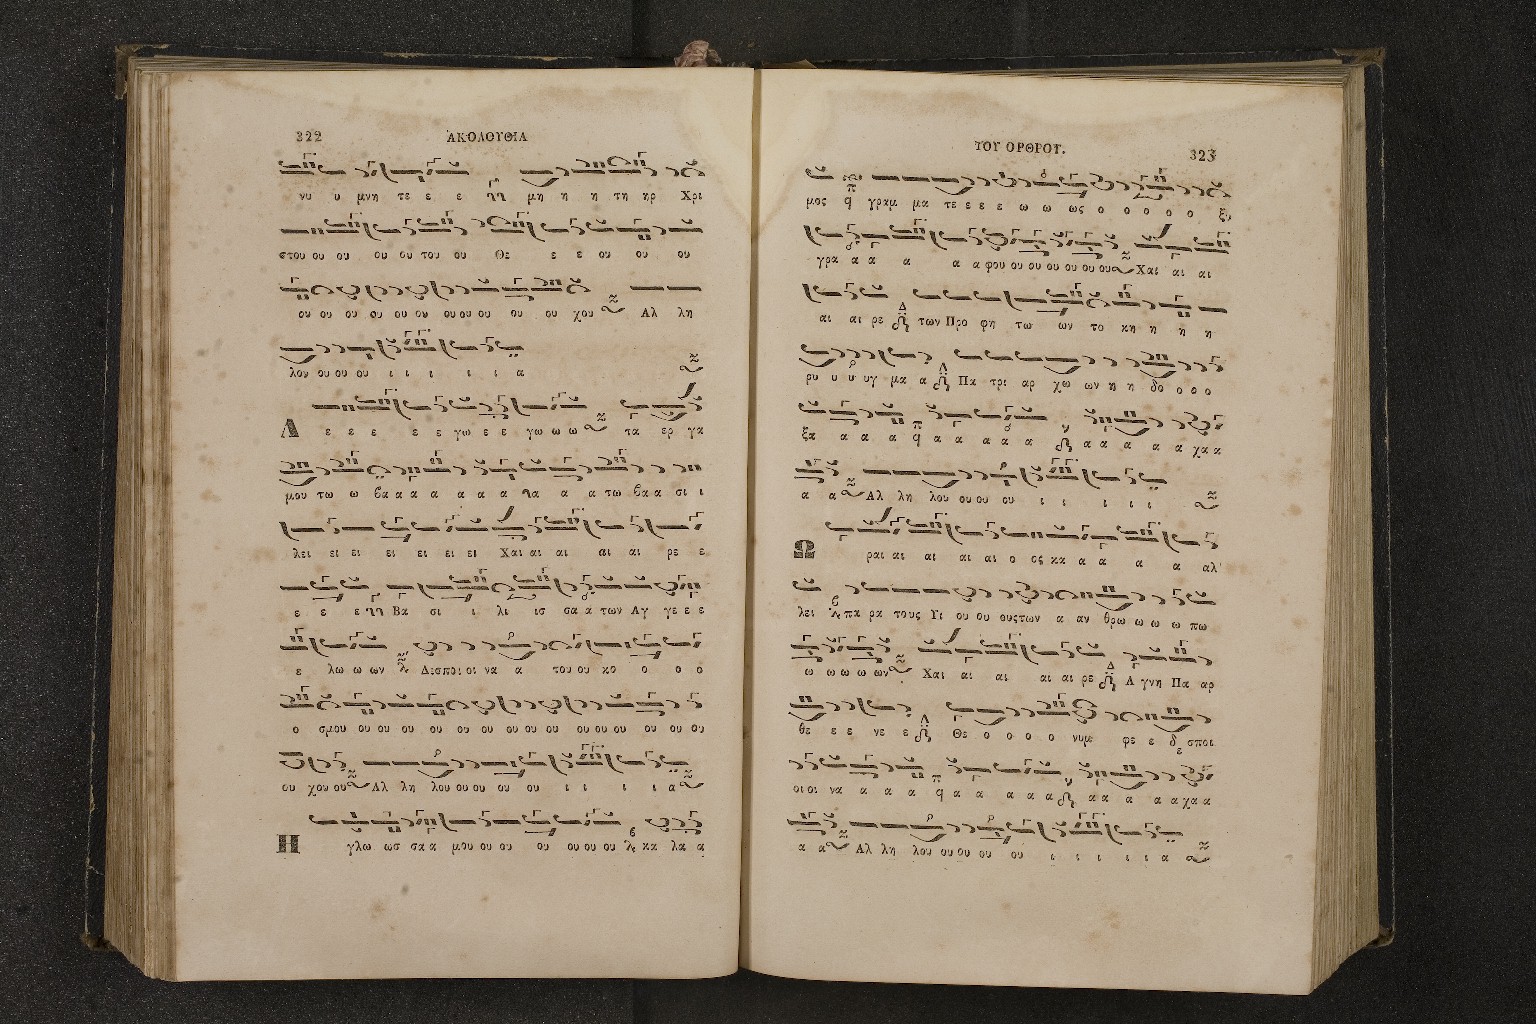 322
ΑΚΟΛΟΥΘΙΑ
νυ υ μνη τε ε ε μη η η τη ηρ Χρι
στου ου ου ου ου του ου Θε ε ε ου ου ου
ου ου ου ου ου ου ου ου ου ου ου χου Αλ λη
λου ου ου ου ι ι ι ι ι α
Λ ε ε ε ε ε γω ε ε γω ω ω τα ερ γα
μου τω ω βα α α α α α α α α τω βα α σι ι
λει ει ει ει ει ει ει Χαι αι αι αι αι ρε ε
ε ε ε Βα σι ι λι ισ σα α των Αγ γε ε ε
ε λω ω ων Δεσποι οι να α του ου κο ο ο ο
ο σμου ου ου ου ου ου ου ου ου ου ου ου ου ου ου
ου χου ου Αλ λη λου ου ου ου ου ι ι ι ι α
Η γλω ωσ σα α μου ου ου ου ου ου ου κα λα α
ΤΟΥ ΟΡΘΡΟΥ.
323
μος γραμ μα τε ε ε ε ω ω ως ο ο ο ο ο ξυ
γρα α α α α α φου ου ου ου ου ου ου Χαι αι αι
αι αι ρε των Προ φη τω ων το κη η η η
ρυ υ υ υγ μα α Πα τρι αρ χω ων η η δο ο ο ο
ξα α α α α α α α α α α α α χα α
α α Αλ λη λου ου ου ου ι ι ι ι ι
Ω ραι αι αι αι αι ο ος κα α α α α αλ
λει πα ρα τους Υι ου ου ους των α αν θρω ω ω ω πω
ω ω ω ω ων Χαι αι αι αι αι ρε Α γνη Πα αρ
θε ε ε νε ε Θε ο ο ο ο νυμ φε ε δε σποι
οι οι να α α α α α α α α α α α α χα α
α α Αλ λη λου ου ου ου ου ι ι ι ι ι α